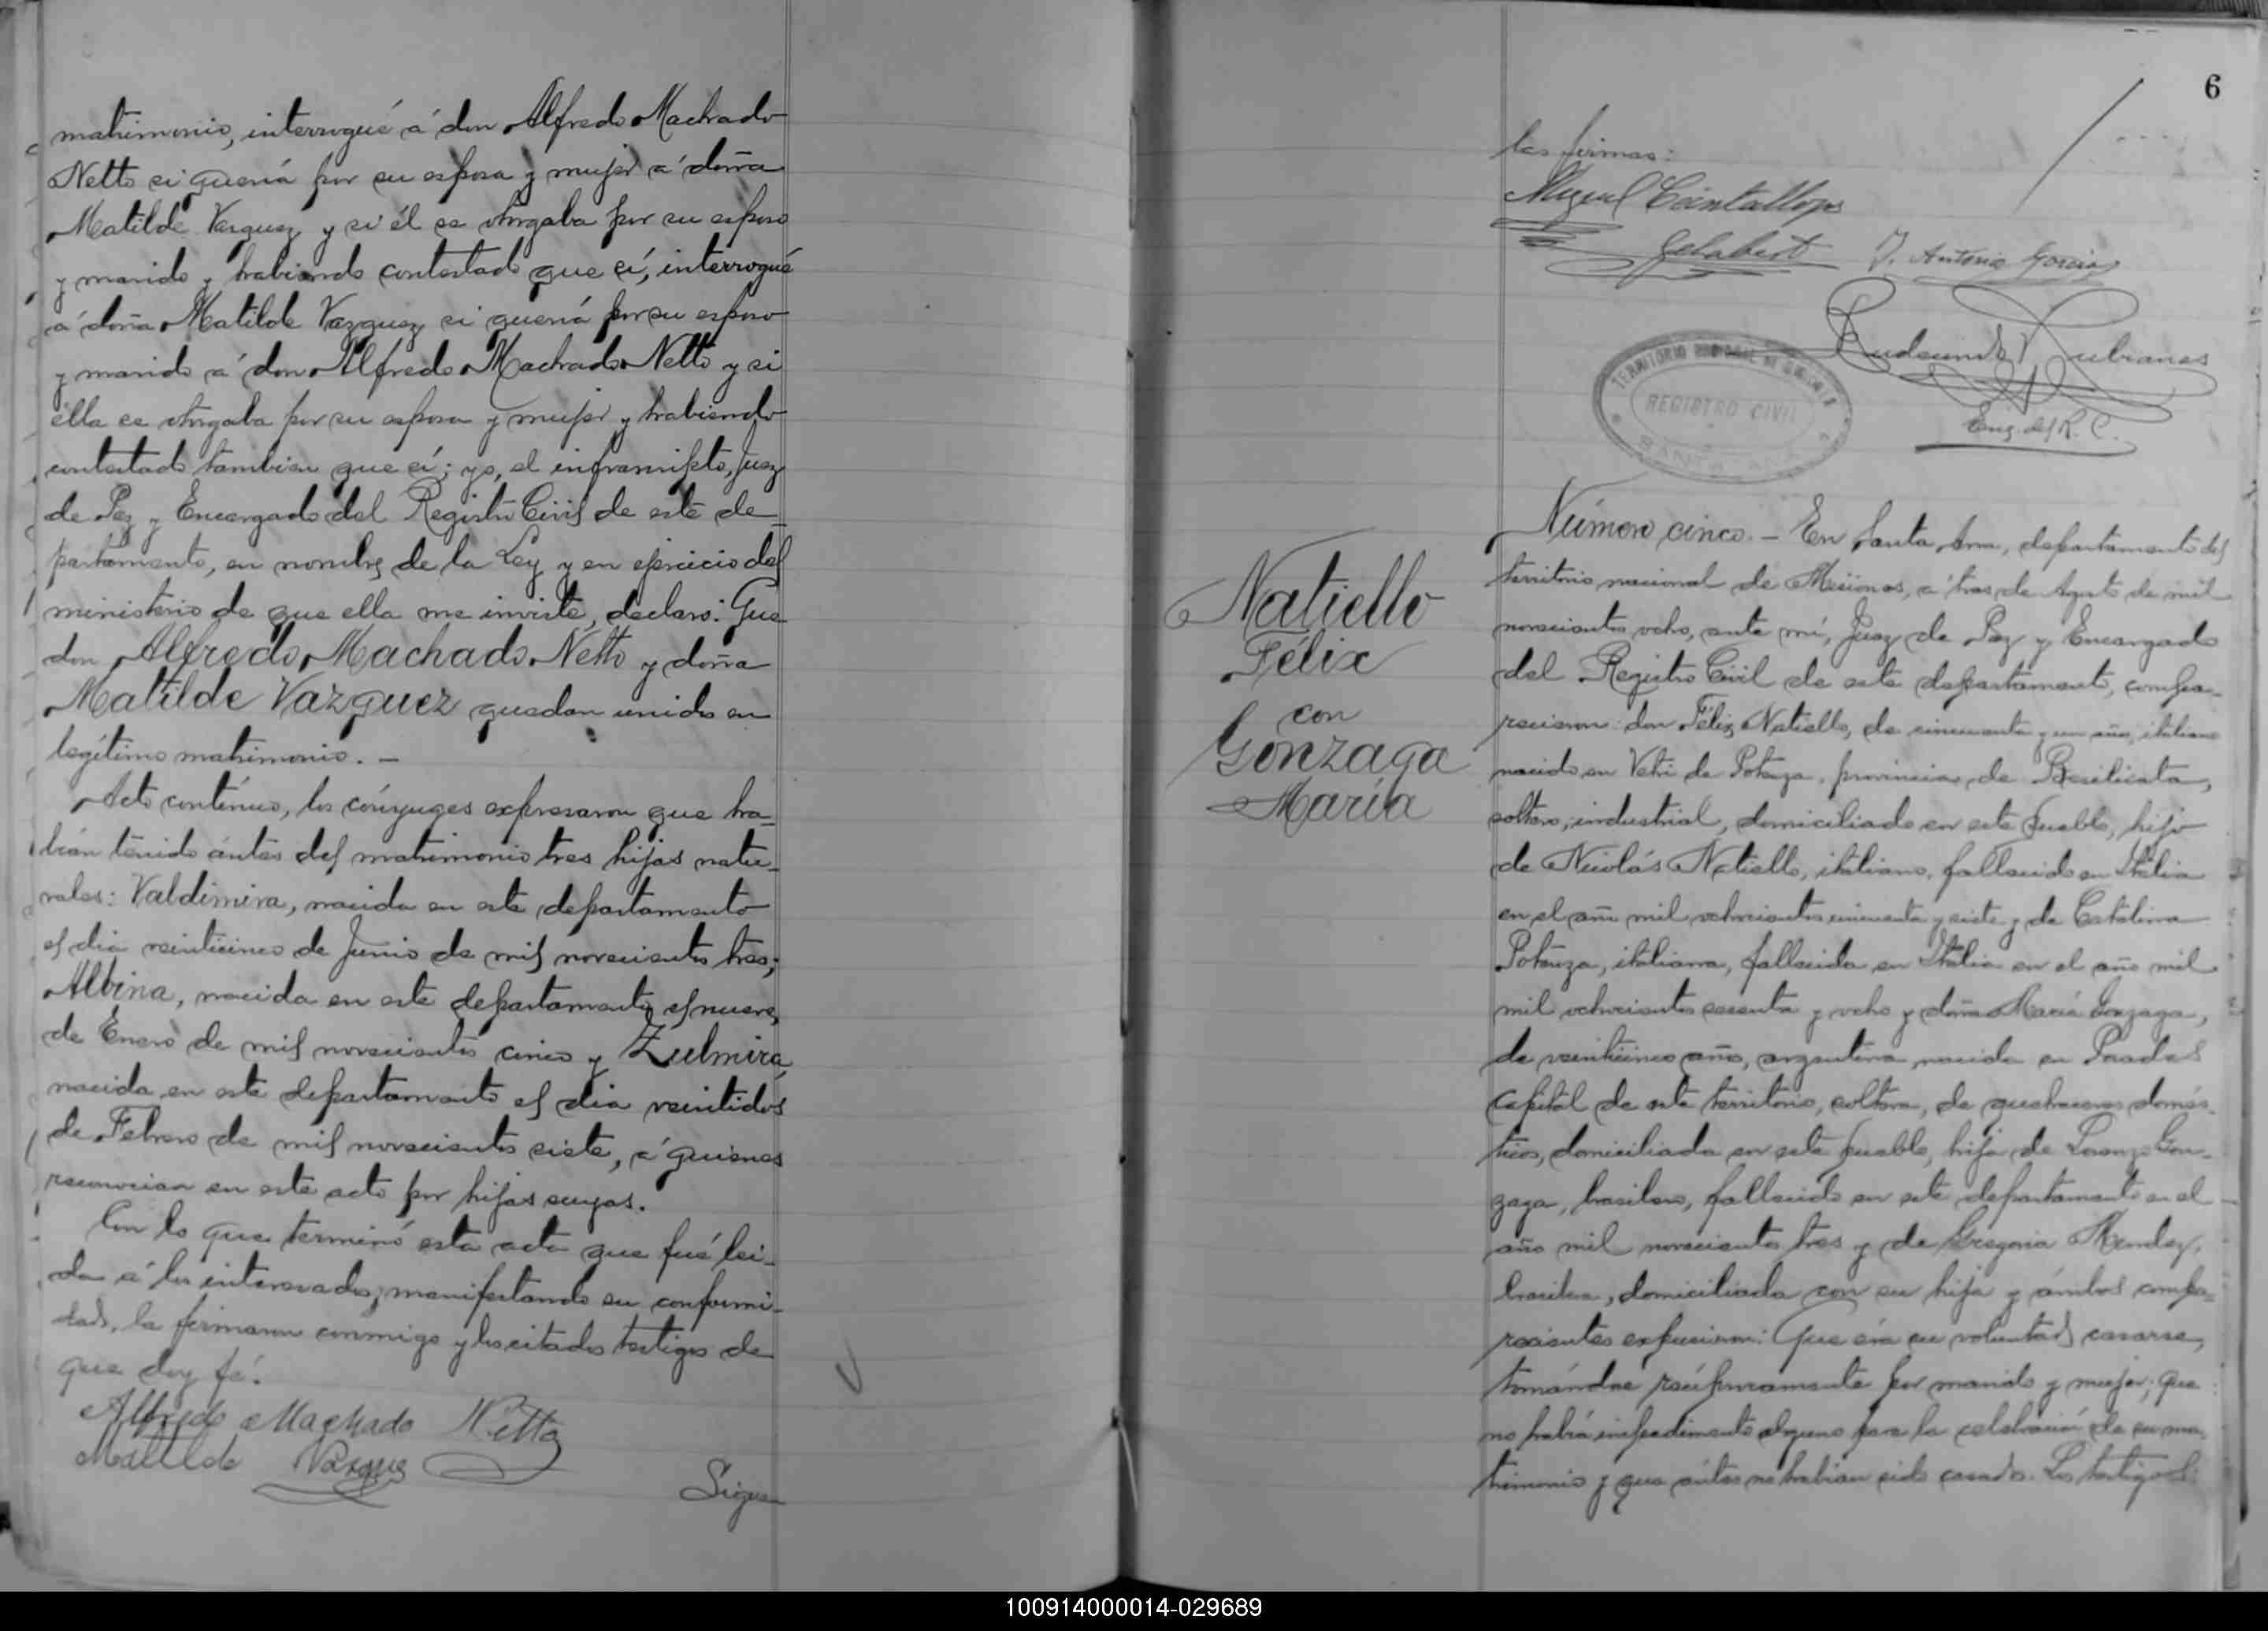 matrimonio, interrogué á don Alfredo Machado
Netto si quería por su esposa y mujer á doña
Matilde Vazquez y si él se otorgaba por su esposo
y marido y habiendo contestado que sí, interrogué
á doña Matilde Vazquez si quería por su esposo
y marido á don Alfredo Machado Netto y si
ella se otorgaba por su esposa y mujer y habiendo
contestado tambien que sí; yo, el infrascripto, Juez
de Paz y Encargado del Registro Civil de este de-
partamento, en nombre de la Ley y en ejercicio del
ministerio de que ella me inviste, declaro: Que
don Alfredo Machado Netto y doña
Matilde Vazquez quedan unidos en
legítimo matrimonio. —
Acto contínuo, los cónyuges expresaron que ha-
bían tenido ántes del matrimonio tres hijas natu-
rales: Valdimira, nacida en este departamento
el dia veinticinco de Junio de mil novecientos tres;
Albina, nacida en este departamento el nueve
de Enero de mil novecientos cinco y Zulmira,
nacida en este departamento el dia veintidos
de Febrero de mil novecientos siete, á quienes
reconocian en este acto por hijas suyas.
Con lo que terminó esta acta que fué lei-
da á los interesados; manifestando su conformi-
dad, la firmaron conmigo y los citados testigos de
que doy fé.
Alfredo Machado Netto
Matilde Vazques
Siguen
6
las firmas:
Miguel Cointallops
Gelabert J. Antonio Garcia
Rudecindo Rubianes
Enc. del R. C.
TERRITORIO NACIONAL DE MISIONES
REGISTRO CIVIL
SANTA ANA
Natiello
Félix
con
Gonzaga
María
Número cinco. — En Santa Ana, departamento del
territorio nacional de Misiones, á tres de Agosto de mil
novecientos ocho, ante mí, Juez de Paz y Encargado
del Registro Civil de este departamento, compa-
recieron: don Félix Natiello, de cincuenta y un año, italiano
nacido en Vetri de Potenza, provincia de Basilicata,
soltero, industrial, domiciliado en este pueblo, hijo
de Nicolás Natiello, italiano, fallecido en Italia
en el año mil ochocientos cincuenta y siete y de Catalina
Potenza, italiana, fallecida en Italia en el año mil
mil ochocientos sesenta y ocho y doña María Gonzaga,
de veinticinco años, argentina, nacida en Posadas
Capital de este territorio, soltera, de quehaceres domés-
ticos, domiciliada en este pueblo, hija de Lorenzo Gon-
zaga, brasilero, fallecido en este departamento en el
año mil novecientos tres y de Gregoria Mendez,
brasilera, domiciliada con su hija y ámbos compa-
recientes expusieron: Que éra su voluntad casarse,
tomándose recíprocamente por marido y mujer; que
no había impedimento alguno para la celebración de su ma-
trimonio y que ántes no habian sido casados. Los testigos
100914000014-029689